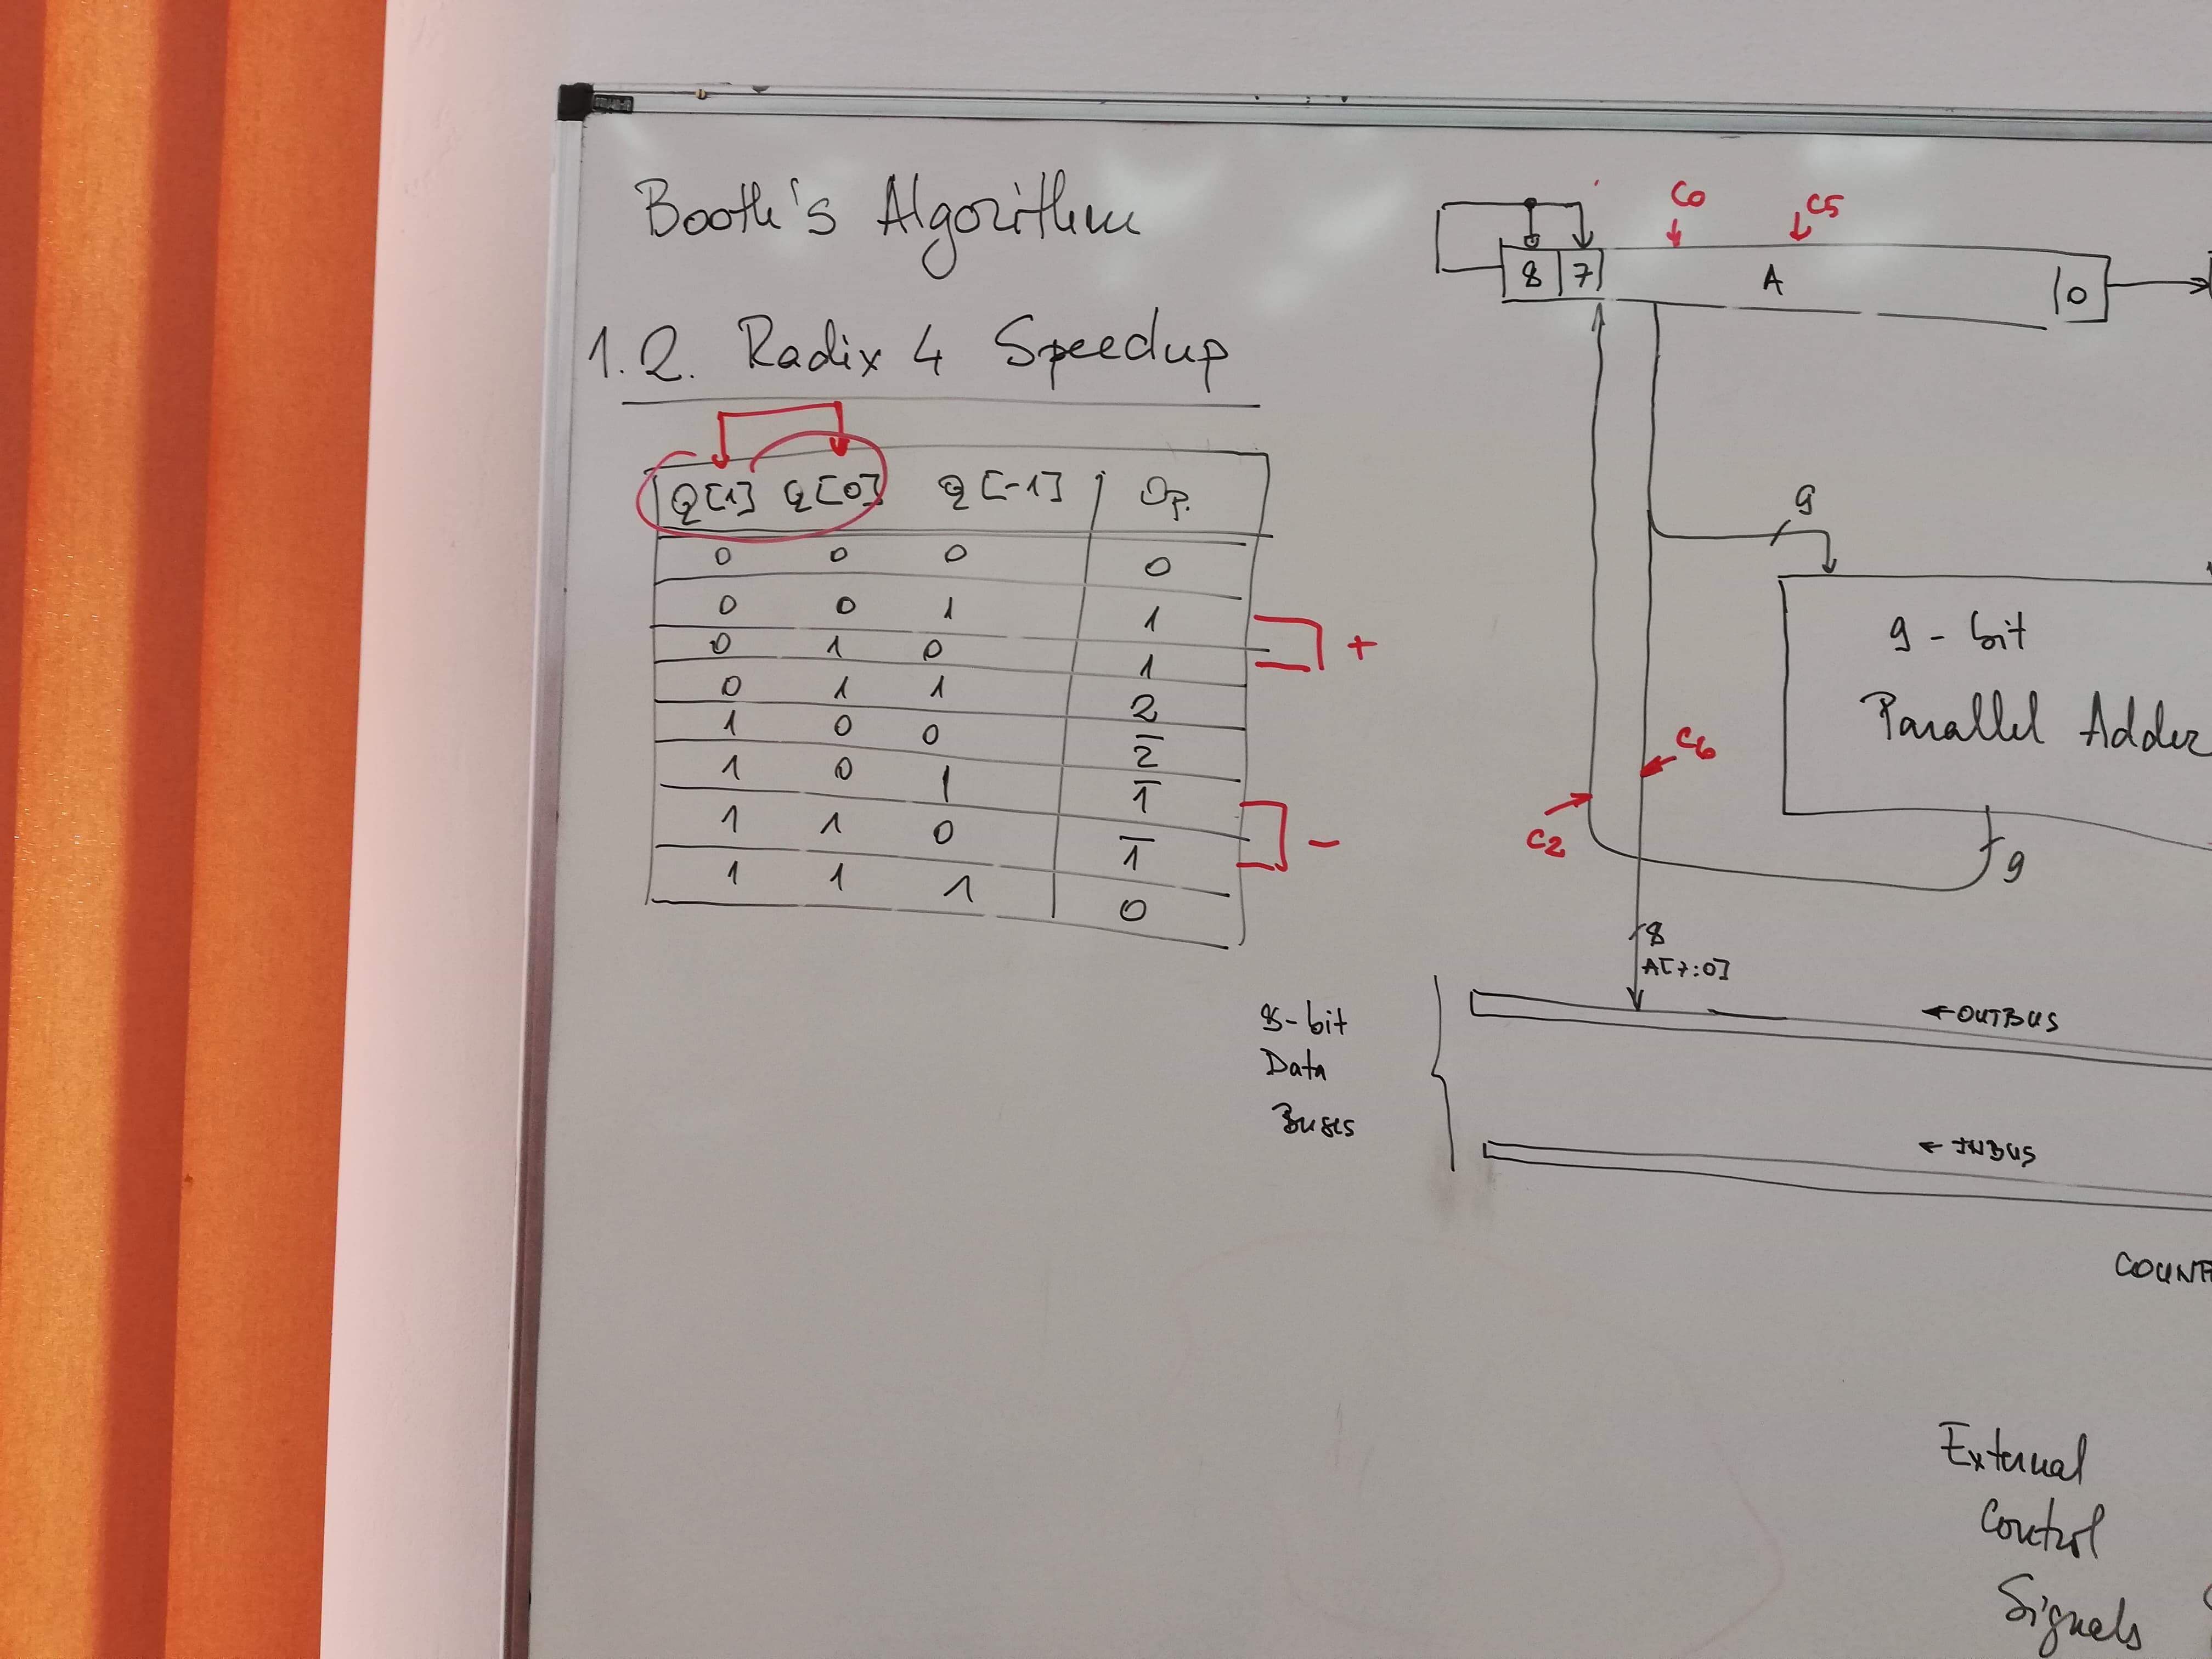 Booth's Algorithm
1.2. Radix 4 Speedup
Q[1] Q[0] Q[-1] Op.
0 0 0 0
0 0 1 1
0 1 0 1
+
0 1 1 2
1 0 0 2̅
1 0 1 1̅
1 1 0 1̅
-
1 1 1 0
C0
C5
8 7 A 0
9
9-bit
Parallel Adder
C6
C2
9
8
A[7:0]
8-bit
Data
Buses
←OUTBUS
← INBUS
COUNT
External
Control
Signals